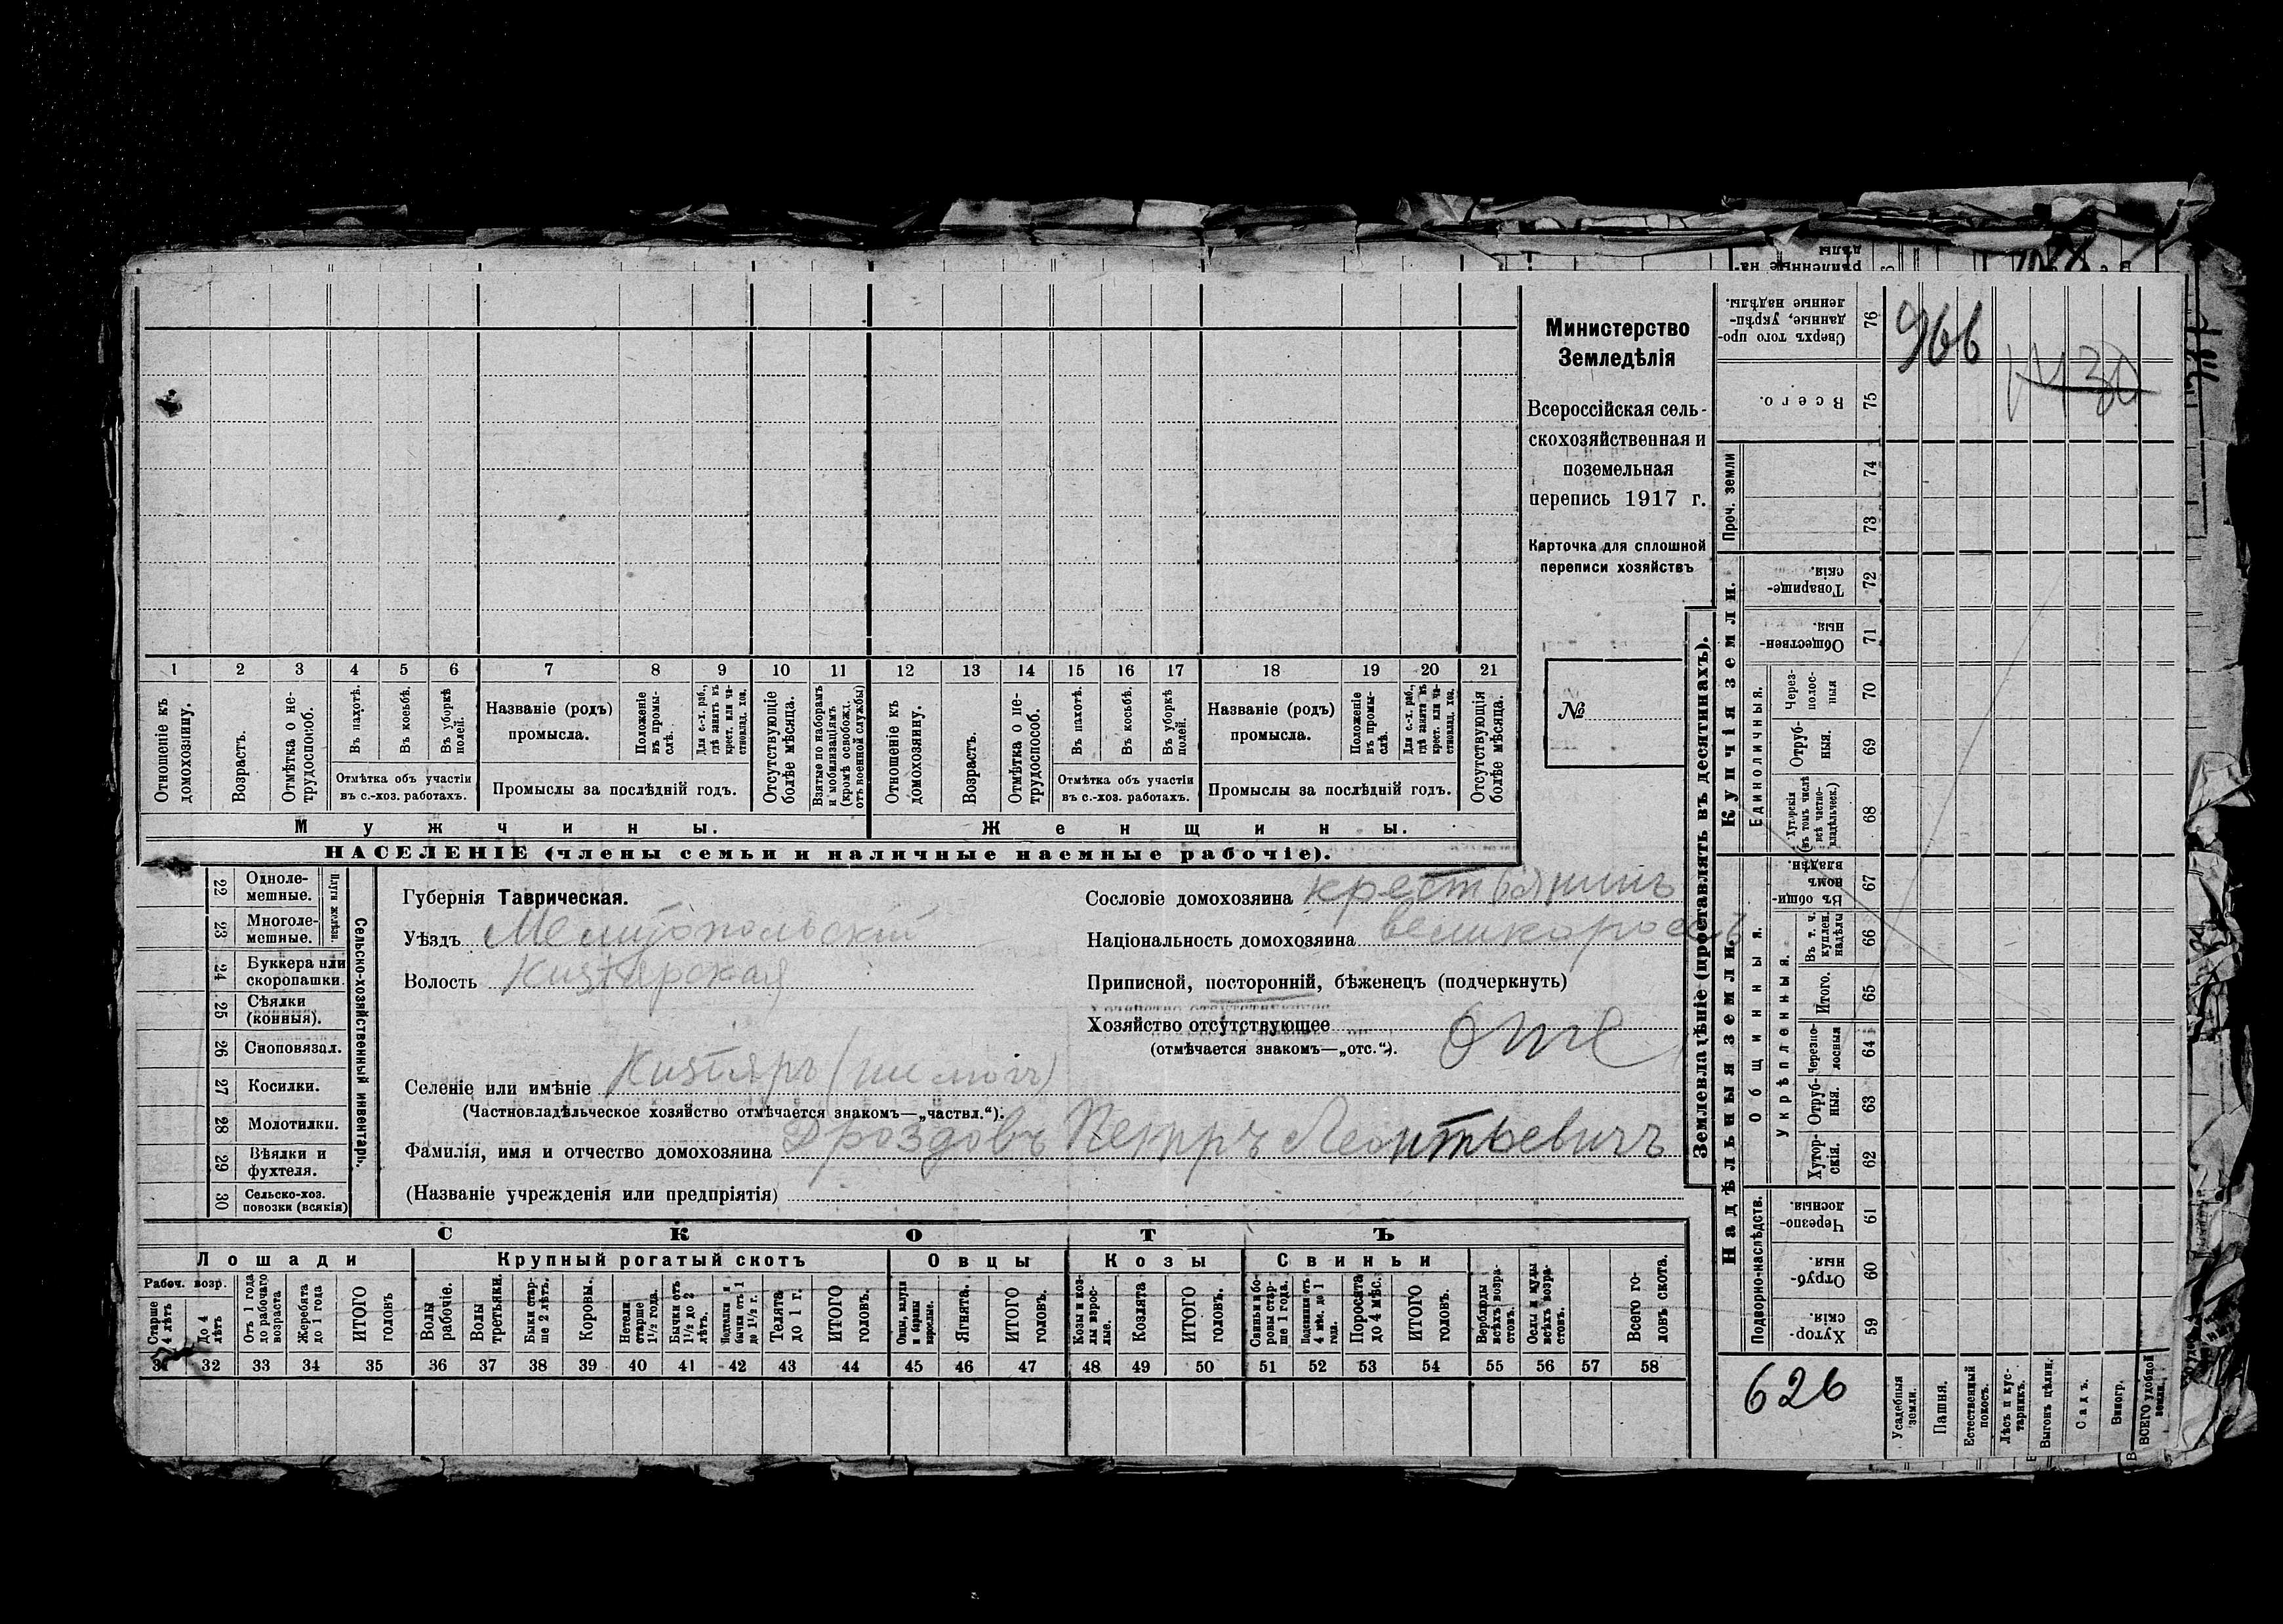 Министерство
Земледѣлія
Всероссійская сель-
скохозяйственная и
поземельная
перепись 1917 г.
Карточка для сплошной
переписи хозяйствъ
№
1 2 3 4 5 6 7 8 9 10 11 12 13 14 15 16 17 18 19 20 21
Отношеніе къ домохозяину.
Возрастъ.
Отмѣтка о не-
трудоспособ.
Въ пахотѣ.
Въ косьбѣ.
Въ уборкѣ
полей.
Отмѣтка объ участіи
въ с.-хоз. работахъ.
Названіе (родъ)
промысла.
Положеніе
въ промы-
слѣ.
Для с.-х. раб.,
гдѣ занятъ въ
крест. или ча-
стновлад. хоз.
Промыслы за послѣдній годъ.
Отсутствующіе
болѣе мѣсяца.
Взятые по наборамъ
и мобилизаціямъ
(кромѣ освобожд.
отъ военной службы)
Отношеніе къ
домохозяину.
Возрастъ.
Отмѣтка о не-
трудоспособ.
Въ пахотѣ.
Въ косьбѣ.
Въ уборкѣ
полей.
Отмѣтка объ участіи
въ с.-хоз. работахъ.
Названіе (родъ)
промысла.
Положеніе
въ промы-
слѣ.
Для с.-х. раб.,
гдѣ занята въ
крест. или ча-
стновлад. хоз.
Промыслы за послѣдній годъ.
Отсутствующія
болѣе мѣсяца.
Мужчины.
Женщины.
НАСЕЛЕНІЕ (члены семьи и наличные наемные рабочіе).
22 Одноле-
мешные.
23 Многоле-
мешные.
Плуги желѣзн.
24 Буккера или
скоропашки.
25 Сѣялки
(конныя).
26 Сноповязал.
27 Косилки.
28 Молотилки.
29 Вѣялки и
фухтеля.
30 Сельско-хоз.
повозки (всякія)
Сельско-хозяйственный инвентарь.
Губернія Таврическая.
Уѣздъ Мелитопольскій
Волость Кизіярская
Селеніе или имѣніе Кизіяръ
(Частновладѣльческое хозяйство отмѣчается знакомъ—„частвл.“).
Фамилія, имя и отчество домохозяина Дроздовъ Петръ Леонтьевичъ
(Названіе учрежденія или предпріятія)
Сословіе домохозяина крестьянинъ
Національность домохозяина великороссъ
Приписной, посторонній, бѣженец (подчеркнуть)
Хозяйство отсутствующее отс
(отмѣчается знакомъ—„отс.“).
СКОТЪ
Лошади
Крупный рогатый скотъ
Овцы
Козы
Свиньи
Рабоч. возр.
Старше
4 лѣтъ
До 4
лѣтъ
Отъ 1 года
до рабочаго
возраста
Жеребята
до 1 года
ИТОГО
головъ
Волы
рабочіе.
Волы
третьяки.
Быки стар-
ше 2 лѣтъ.
Коровы.
Нетели
старше
1½ года.
Бычки отъ
1½ до 2
лѣтъ.
Подтелки и
бычки отъ 1
до 1½ г.
Телята
до 1 г.
ИТОГО
головъ.
Овцы, валухи
и бараны
взрослые.
Ягнята.
ИТОГО
головъ.
Козы и коз-
лы взрос-
лые.
Козлята
ИТОГО
головъ.
Свиньи и бо-
ровы стар-
ше 1 года.
Подсвинки отъ
4 мѣс. до 1
года.
Поросята
до 4 мѣс.
ИТОГО
головъ.
Верблюды
всѣхъ возра-
стовъ.
Ослы и мулы
всѣхъ возра-
стовъ.
Всего го-
ловъ скота.
31 32 33 34 35 36 37 38 39 40 41 42 43 44 45 46 47 48 49 50 51 52 53 54 55 56 57 58
Землевладѣніе (проставлять въ десятинахъ).
Надѣльныя земли.
Купчія земли.
Проч. земли
Подворно-наслѣдств.
Общинныя.
Укрѣпленныя.
Единоличныя.
Сверхъ того про-
данные, укрѣп-
ленные надѣлы. 76
Всего. 75
74
73
Товарище-
скія. 72
Обществен-
ныя. 71
Через-
полос-
ныя 70
Отруб-
ныя. 69
Хуторскія
(въ томъ числѣ
всѣ частно-
владѣльческ.) 68
Въ общин-
номъ
владѣн. 67
Въ т. ч.
куплен.
надѣлы 66
Итого. 65
Черезпо-
лосныя 64
Отруб-
ныя. 63
Хутор-
скія. 62
Черезпо-
лосныя. 61
Отруб-
ныя. 60
Хутор-
скія. 59
966
1430
626
Усадебныя
земли.
Пашня.
Естественный
покосъ.
Лѣсъ и кус-
тарникъ.
Выгонъ цѣлин.
Садъ.
Виногр.
ВСЕГО удобной
земли.